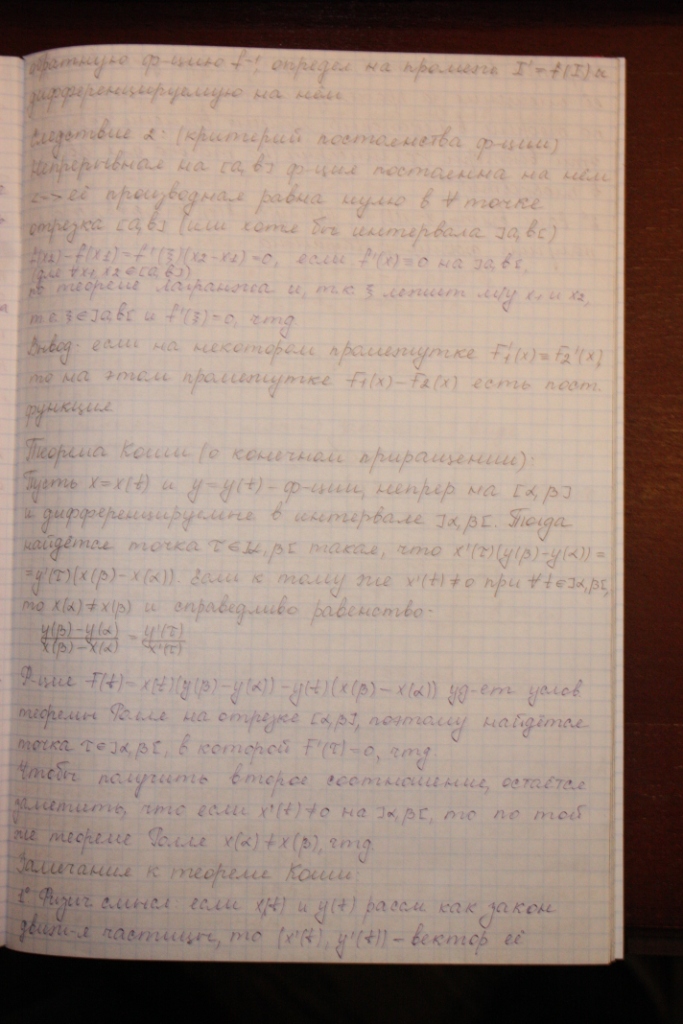 обратную ф-цию f⁻¹, определ на промеж. I' = f(I) и
дифференцируемую на нём
Следствие 2: (критерий постоянства ф-ции)
Непрерывная на [a,b] ф-ция постоянна на нём
<-> её производная равна нулю в ∀ точке
отрезка [a,b] (или хотя бы интервала ]a,b[)
f(x₂)-f(x₁)=f'(ξ)(x₂-x₁)=0, если f'(x)=0 на ]a,b[,
(для ∀x₁,x₂∈[a,b])
по теореме Лагранжа и, т.к ξ лежит м/у x₁ и x₂,
то ξ∈]a,b[ и f'(ξ)=0, чтд.
Вывод: если на некотором промежутке F₁'(x)=F₂'(x),
то на этом промежутке F₁(x)-F₂(x) есть пост.
функция
Теорема Коши (о конечном приращении):
Пусть x=x(t) и y=y(t) - ф-ции, непрер на [α,β]
и дифференцируемые в интервале ]α,β[. Тогда
найдётся точка τ∈]α,β[ такая, что x'(τ)(y(β)-y(α))=
=y'(τ)(x(β)-x(α)). Если к тому же x'(t)≠0 при ∀t∈]α,β[,
то x(α)≠x(β) и справедливо равенство:
(y(β)-y(α))/(x(β)-x(α)) = y'(τ)/x'(τ)
Ф-ция F(t)= x(t)(y(β)-y(α))-y(t)(x(β)-x(α)) уд-ет услов
теоремы Ролля на отрезке [α,β], поэтому найдётся
точка τ∈]α,β[, в которой F'(τ)=0, чтд.
Чтобы получить второе соотношение, остаётся
заметить, что если x'(t)≠0 на ]α,β[, то по той
же теореме Ролля x(α)≠x(β), чтд
Замечания к теореме Коши:
1° Физич смысл: если x(t) и y(t) рассм как закон
движ-я частицы, то (x'(t), y'(t)) - вектор её